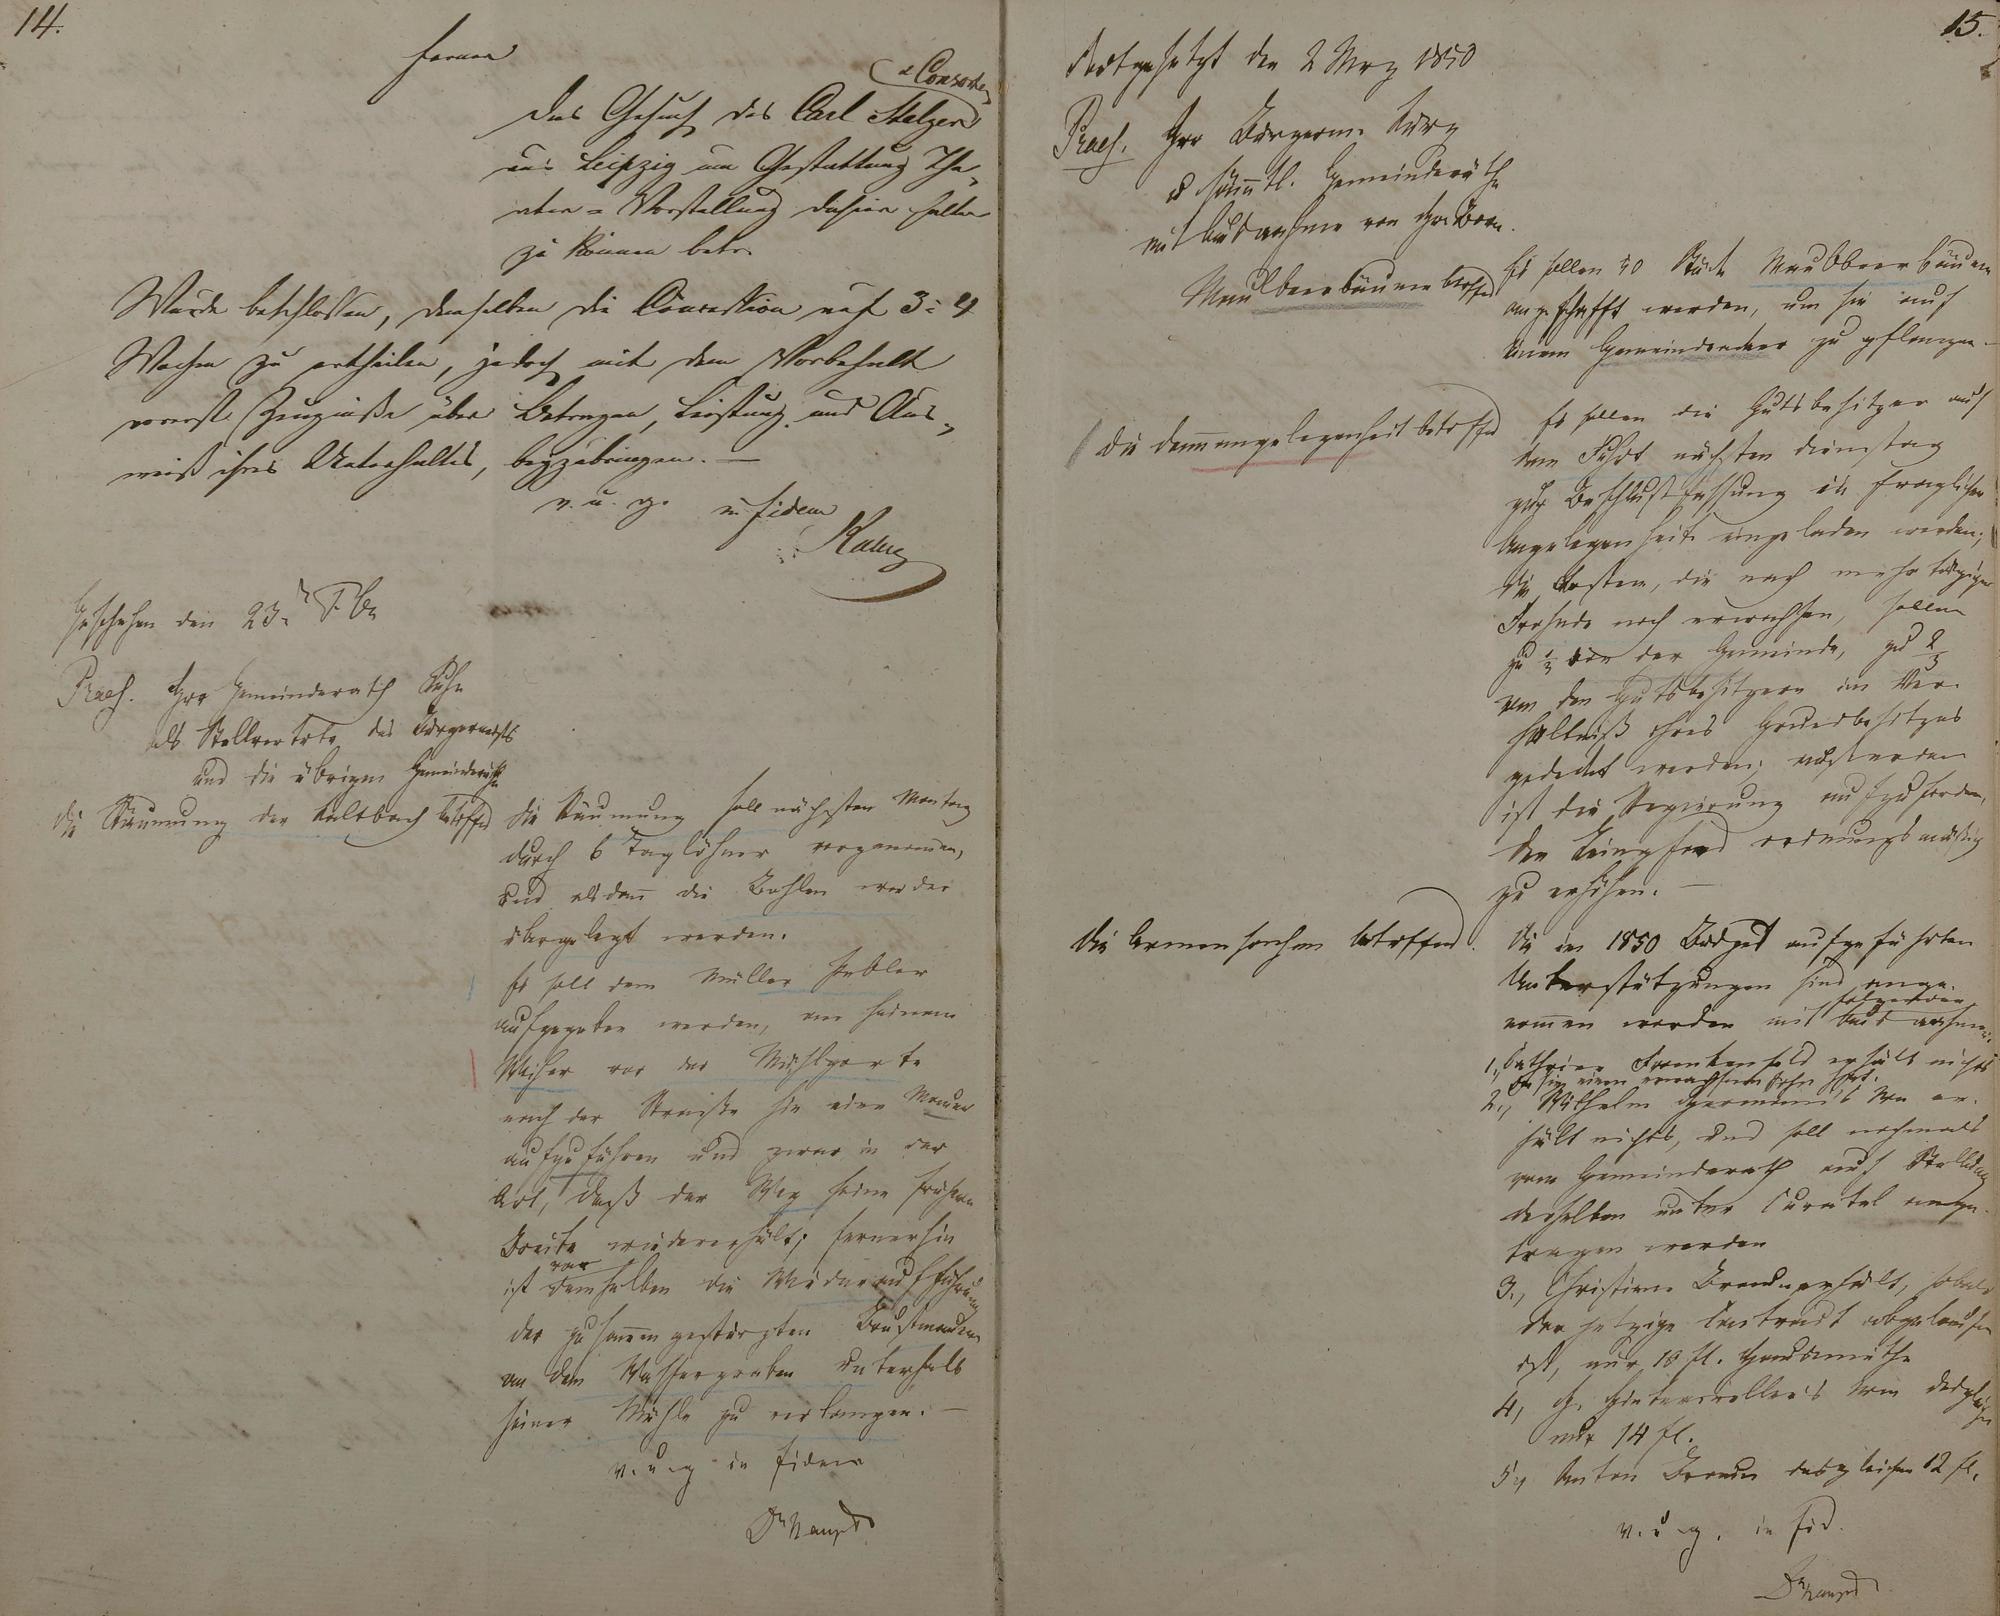 14.
ferner
& Consorten
Das Gesuch des Carl Stelzer
aus Leipzig um Gestattung Thea-
ater-Vorstellung dahier halten
zu können betr.
Wurde beschlossen, demselben die Concession auf 3-4
Wochen zu ertheilen, jedoch mit dem Vorbehalt
vorerst Zeugniße über Betragen, Leistung und Aus-
weiß ihres Unterhaltes, beyzubringen. —
v. u. g. in fidem
Geschehen den 23ten Fbr
Praes. Herr Gemeinderath
als Stellvertrter des Bürgermstrs
und die übrigen Gemeinderäthe
Die Räumung der Kaltbach betreffd
Die Räumung soll nächsten Montag
durch 6 Taglöhner vorgenommen,
und alsdann die Bohlen wieder
übergelegt werden.
Es soll dem Müller
aufgegeben werden, an seinem
Weiher vor der Mühlporte
nach der Straße hin eine Mauer
aufzuführen und zwar in der
Art, daß der Weg seine frühere
Breite wiedererhält; fernerhin
ist von demselben die Wiederaufführung
der zusammengestürzten Brustmauer
an dem Wassergraben unterhalb
seiner Mühle zu verlangen. —
v. u. g. in fidem
15.
Fortgesetzt den 2 Merz 1850
Praes. Herr Bürgerm.
u sämmtl. Gemeinderäthe
mit Ausnahme von Herr Born.
Maulbeerbäume betreffd
Es sollen 50 Stück Maulbeerbäume
angeschafft werden, um sie auf
einem Gemeindeacker zu pflanzen. —
Die Dammangelegenheit betreffd
Es sollen die Gutsbesitzer auf
dem nächsten Dienstag
zur Beschlußfassung in fraglicher
Angelegenheit eingeladen werden;
die Kosten, die nach mehrtägiger
Frohnde noch erwachsen, sollen
zu 1/3 von der Gemeinde, zu 2/3
von den Gutsbesitzern im Ver-
hältniß ihres Grundbesitzes
gedeckt werden; außerdem
ist die Regierung aufzufordern,
den Leinpfad ordnungsmäßig
zu erhöhen. —
Die Armensachen betreffend.
Die im 1850 Budget aufgeführten
Unterstützungen sind ange-
nommen worden mit folgenden Ausnahmen:
1., Cathrine Frankenfeld erhält nichts
da sie einen erwachsenen Sohn hat.
2., Wilhelm Wwe er-
hält nichts, und soll nochmals
vom Gemeinderath auf Stellung
derselben unter Curatel ange-
tragen werden
3., Christian Braun erhält, sobald
der jetzige Contract abgelaufen
ist, nur 10 fl. Hausmiethe
4, Wwe desgleichen
nur 14 fl.
5, Anton Braun desgleichen 12 fl.
v. u. g. in fid.